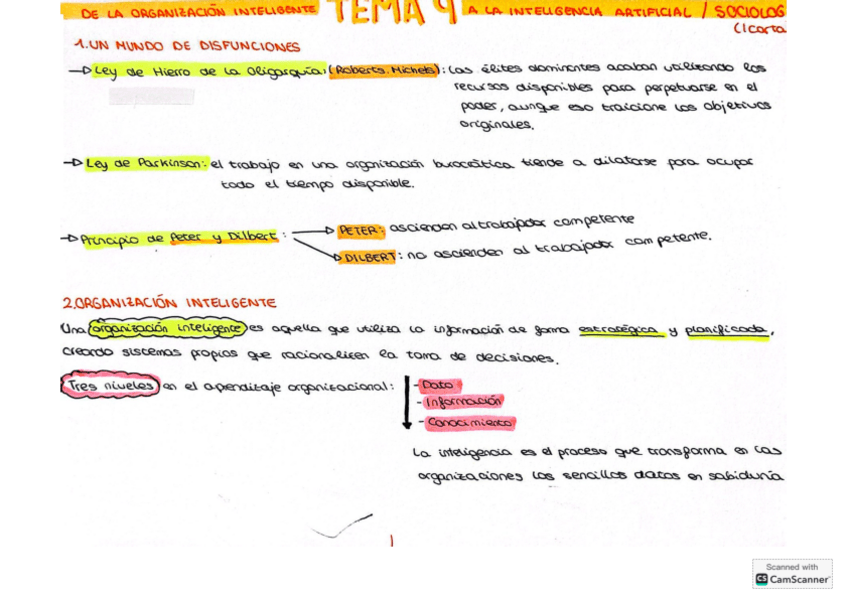 DE LA ORGANIZACIÓN INTELIGENTE TEMA 9 A LA INTELIGENCIA ARTIFICIAL / SOCIOLOG
Clcarta
1. UN MUNDO DE DISFUNCIONES
→ Ley de Hierro de la Oligarquía: (Roberts. Michels): Las élites dominantes acaban utilizando los
recursos disponibles para perpetuarse en el
poder, aunque eso traicione los objetivos
originales.
→ Ley de Parkinson: el trabajo en una organización burocrática tiende a dilatarse para ocupar
todo el tiempo disponible.
→ Principio de Peter y Dilbert: → PETER: ascienden al trabajador competente
→ DILBERT: no ascienden al trabajador competente.
2. ORGANIZACIÓN INTELIGENTE
Una organización inteligente es aquella que utiliza la información de forma estratégica y planificada,
creando sistemas propios que racionalicen la toma de decisiones.
Tres niveles en el aprendizaje organizacional: - Dato
- Información
- Conocimiento
La inteligencia es el proceso que transforma en las
organizaciones los sencillos datos en sabiduría
1
Scanned with
CS CamScanner